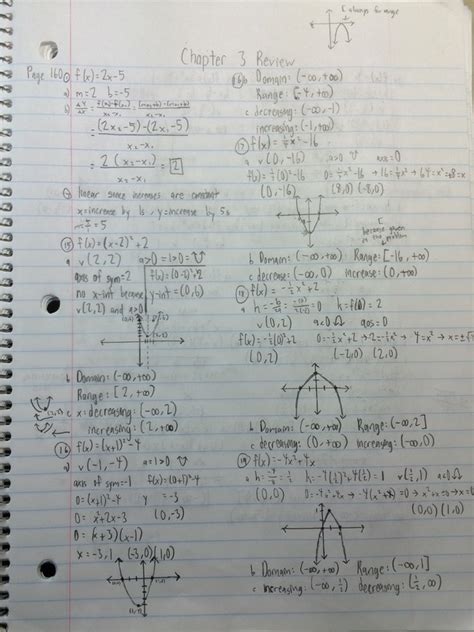 [ always for range
Chapter 3 Review
Page 160 ① f(x)=2x-5
a) m=2 b=-5
= (2x₂-5)-(2x₁-5)
x₂-x₁
= 2(x₂-x₁) = 2
x₂-x₁
linear since increases are constant
x=increase by 1s, y=increase by 5s
⑮ f(x)=(x-2)²+2
a v(2,2) a=1>0
axis of sym=2
no x-int because
v(2,2) and a>0
f(0)=(0-2)²+2
y-int=(0,6)
b Domain: (-∞,+∞)
Range: [2,+∞)
c x: decreasing: (-∞,2)
increasing: (2,+∞)
⑯ f(x)=(x+1)²-4
a v(-1,-4) a=1>0
axis of sym=-1 f(x)=(0+1)²-4
0=(x+1)²-4 y=-3
0=x²+2x-3 (0,-3)
0=(x+3)(x-1)
x=-3,1 (-3,0)(1,0)
⑯ b Domain: (-∞,+∞)
Range: [-4,+∞)
c decreasing: (-∞,-1)
increasing: (-1,+∞)
⑰ f(x)=¼x²-16
a v(0,-16) a>0 aos=0
f(0)=¼(0)²-16 0=¼x²-16→16=¼x²→64=x²→±8
(0,-16) (8,0) (-8,0)
[
because given
in the problem
b Domain: (-∞,+∞) Range: [-16,+∞)
c decrease: (-∞,0) increase: (0,+∞)
⑱ f(x)=-½x²+2
v(0,2) a<0 aos=0
f(x)=-½(0)²+2 0=-½x²+2→-2=-½x²→4=x²→x=±√4
(0,2) (-2,0) (2,0)
b Domain: (-∞,+∞) Range: (-∞,2]
c decreasing: (0,+∞) increasing: (-∞,0)
⑲ f(x)=-4x²+4x
v(½,1) a<0
(0,0)
(0,0)(1,0)
b Domain: (-∞,+∞) Range: (-∞,1]
c increasing: (-∞,½) decreasing: (½,∞)